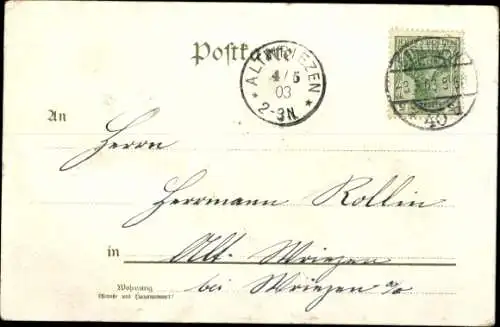 Postkarte
ALTWRIEZEN
4/5
03
2-3N
An
Herrn
Herrmann Rollin
in Alt-Wriezen
bei Wriezen a/o
Wohnung
(Straße und Hausnummer)